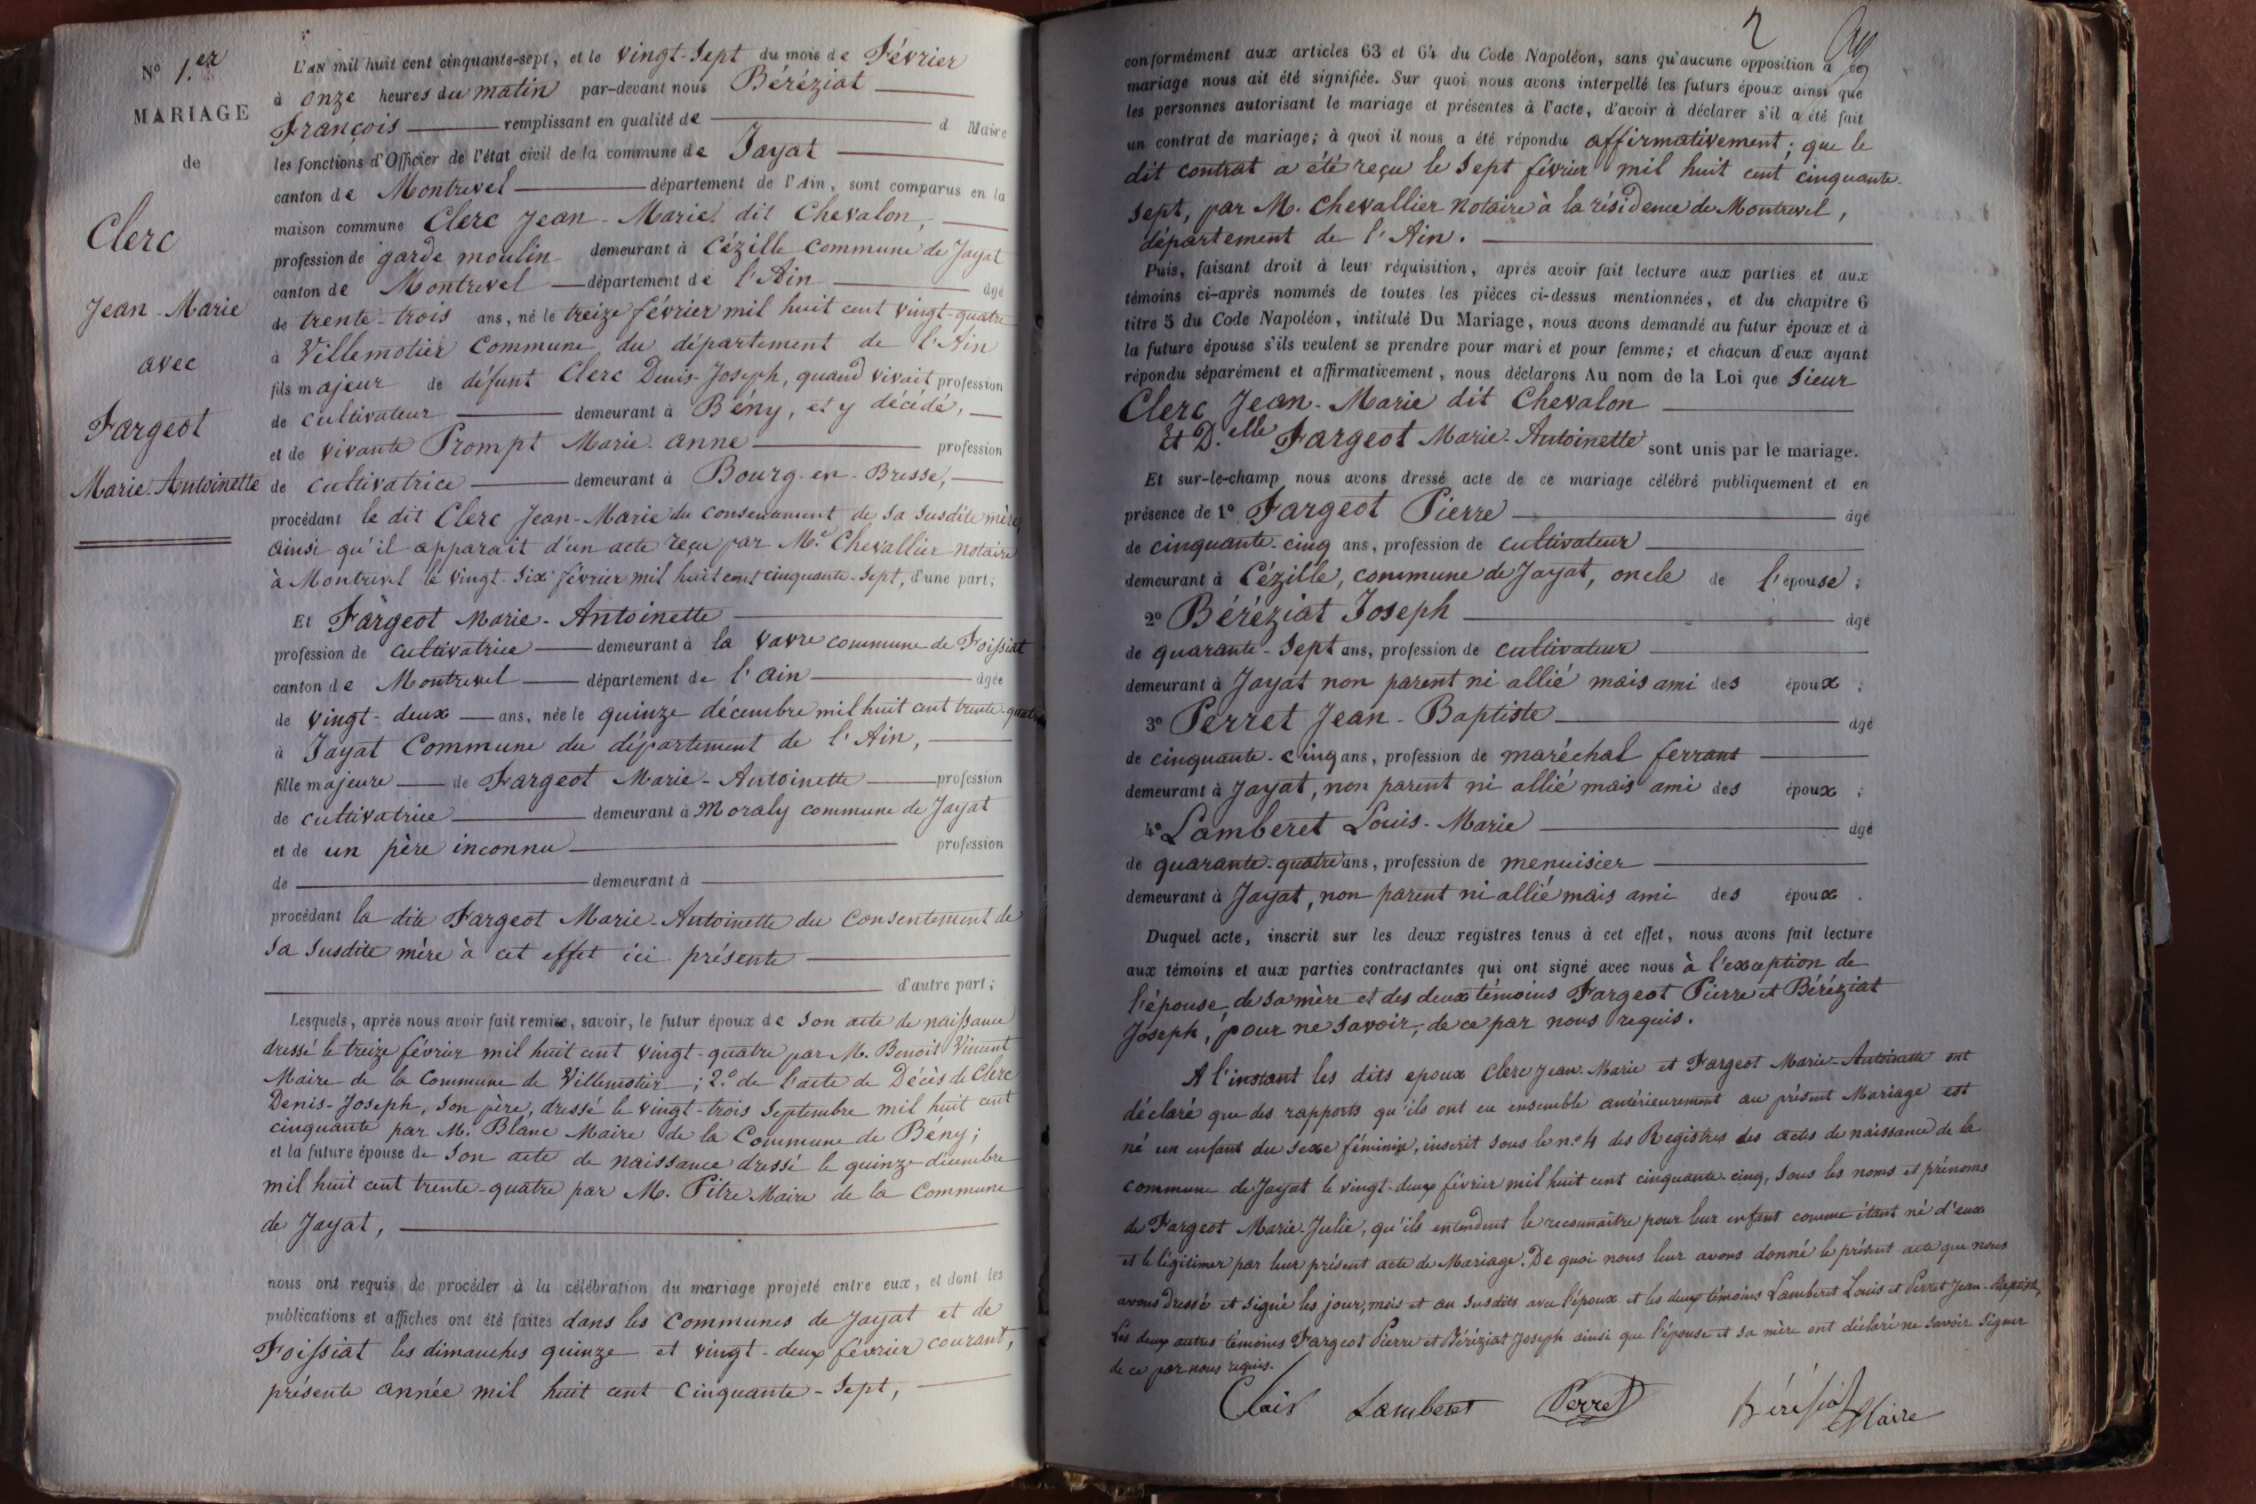 N° 1.er
MARIAGE
de
Clerc
Jean-Marie
avec
Fargeot
Marie-Antoinette
L'an mil huit cent cinquante-sept, et le vingt-sept du mois de Février
à onze heures du matin par-devant nous Béréziat
François remplissant en qualité de d Maire
les fonctions d'Officier de l'état civil de la commune de Jayat
canton de Montrevel département de l'Ain, sont comparus en la
maison commune Clerc Jean-Marie dit Chevalon,
profession de garde moulin demeurant à Cézille commune de Jayat
canton de Montrevel département de l'Ain âgé
de trente-trois ans, né le treize février mil huit cent vingt-quatre
à Villemotier Commune du département de l'Ain
fils majeur de défunt Clerc Denis-Joseph, quand vivait profession
de cultivateur demeurant à Bény, et y décédé,
et de vivante Prompt Marie-anne profession
de cultivatrice demeurant à Bourg-en-Bresse,
procédant le dit Clerc Jean-Marie du consentement de sa susdite mère,
ainsi qu'il apparait d'un acte reçu par M.e Chevallier notaire
à Montrevel le vingt-six février mil huit cent cinquante-sept, d'une part;
Et Fargeot Marie-Antoinette
profession de cultivatrice demeurant à la vavre commune de Foissiat
canton de Montrevel département de l'ain âgée
de vingt-deux ans, née le quinze décembre mil huit cent trente-quatre
à Jayat Commune du département de l'Ain,
fille majeure de Fargeot Marie-Antoinette profession
de cultivatrice demeurant à Moraly commune de Jayat
et de un père inconnu profession
de demeurant à
procédant la dite Fargeot Marie-Antoinette du consentement de
sa susdite mère à cet effet ici présente
d'autre part;
Lesquels, après nous avoir fait remise, savoir, le futur époux de son acte de naissance
dressé le treize février mil huit cent vingt-quatre par M. Benoit Vincent
Maire de la Commune de Villemotier; 2.° de l'acte de Décès de Clerc
Denis-Joseph, son père, dressé le vingt-trois Septembre mil huit cent
cinquante par M. Blanc Maire de la Commune de Bény;
et la future épouse de son acte de naissance dressé le quinze décembre
mil huit cent trente-quatre par M. Pitre Maire de la Commune
de Jayat,
nous ont requis de procéder à la célébration du mariage projeté entre eux, et dont les
publications et affiches ont été faites dans les Communes de Jayat et de
Foissiat les dimanches quinze et vingt-deux février courant,
présente année mil huit cent cinquante-sept,
2
conformément aux articles 63 et 64 du Code Napoléon, sans qu'aucune opposition à ce
mariage nous ait été signifiée. Sur quoi nous avons interpellé les futurs époux ainsi que
les personnes autorisant le mariage et présentes à l'acte, d'avoir à déclarer s'il a été fait
un contrat de mariage; à quoi il nous a été répondu affirmativement; que le
dit contrat a été reçu le sept février mil huit cent cinquante-
sept, par M. Chevallier notaire à la résidence de Montrevel,
département de l'Ain.
Puis, faisant droit à leur réquisition, après avoir fait lecture aux parties et aux
témoins ci-après nommés de toutes les pièces ci-dessus mentionnées, et du chapitre 6
titre 5 du Code Napoléon, intitulé Du Mariage, nous avons demandé au futur époux et à
la future épouse s'ils veulent se prendre pour mari et pour femme; et chacun d'eux ayant
répondu séparément et affirmativement, nous déclarons Au nom de la Loi que sieur
Clerc Jean-Marie dit Chevalon
Et D.elle Fargeot Marie-Antoinette sont unis par le mariage.
Et sur-le-champ nous avons dressé acte de ce mariage célébré publiquement et en
présence de 1° Fargeot Pierre âgé
de cinquante-cinq ans, profession de cultivateur
demeurant à Cézille, commune de Jayat, oncle de l'épouse;
2° Béréziat Joseph âgé
de quarante-sept ans, profession de cultivateur
demeurant à Jayat non parent ni allié mais ami des époux;
3° Perret Jean-Baptiste âgé
de cinquante-cinq ans, profession de maréchal ferrant
demeurant à Jayat, non parent ni allié mais ami des époux;
4° Lamberet Louis-Marie âgé
de quarante-quatre ans, profession de menuisier
demeurant à Jayat, non parent ni allié mais ami des époux.
Duquel acte, inscrit sur les deux registres tenus à cet effet, nous avons fait lecture
aux témoins et aux parties contractantes qui ont signé avec nous à l'exception de
l'épouse, de sa mère et des deux témoins Fargeot Pierre et Béréziat
Joseph, pour ne savoir, de ce par nous requis.
A l'instant les dits epoux Clerc Jean-Marie et Fargeot Marie-Antoinette ont
déclaré que des rapports qu'ils ont eu ensemble antérieurement au présent Mariage est
né un enfant du sexe féminin, inscrit sous le n.° 4 des Registres des actes de naissance de la
commune de Jayat le vingt-deux février mil huit cent cinquante-cinq, sous les noms et prénoms
de Fargeot Marie-Julie, qu'ils entendent le reconnaître pour leur enfant comme étant né d'eux
et le légitimer par leur présent acte de Mariage. De quoi nous leur avons donné le présent acte que nous
avons dressé et signé les jour, mois et an susdits avec l'époux et les deux témoins Lamberet Louis et Perret Jean-Baptiste,
les deux autres témoins Fargeot Pierre et Béréziat Joseph ainsi que l'épouse et sa mère ont déclaré ne savoir signer
de ce par nous requis.
Clair Lamberet Perret Béréziat Maire